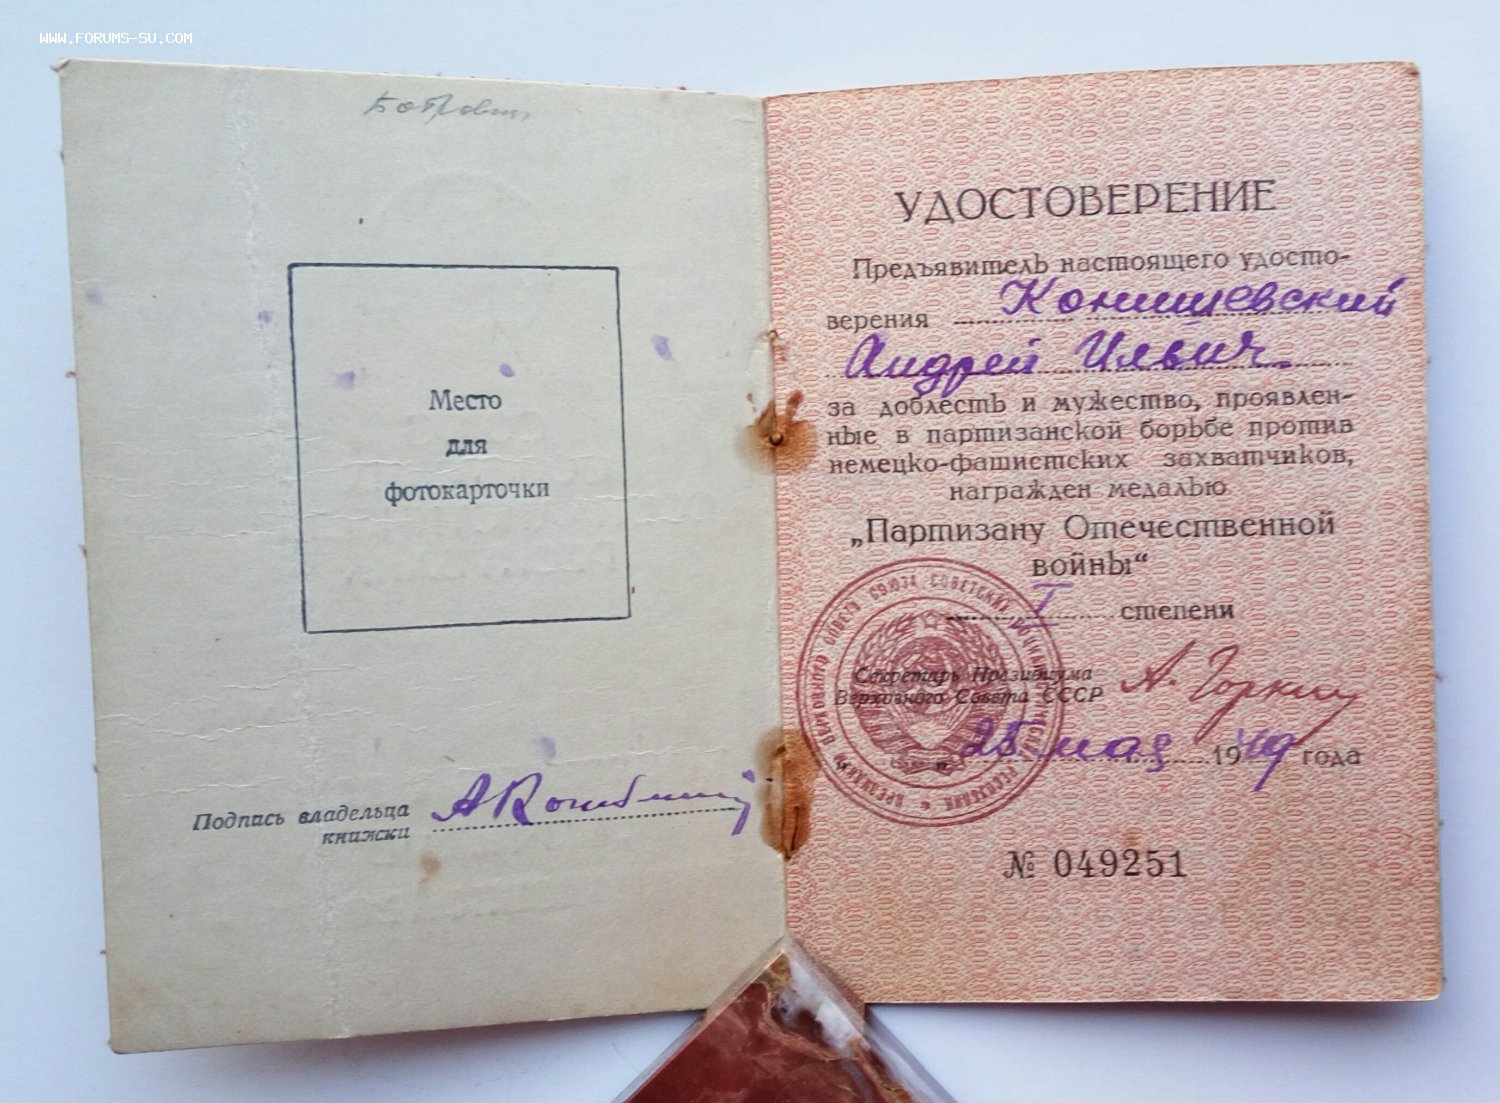 WWW.FORUMS-SU.COM
Место
для
фотокарточки
Подпись владельца
книжки
УДОСТОВЕРЕНИЕ
Предъявитель настоящего удосто-
верения Конишевский
Андрей Ильич
за доблесть и мужество, проявлен-
ные в партизанской борьбе против
немецко-фашистских захватчиков,
награжден медалью
„Партизану Отечественной
войны“
I степени
Секретарь Президиума
Верховного Совета СССР А. Горкин
„25" мая 1949 года
№ 049251